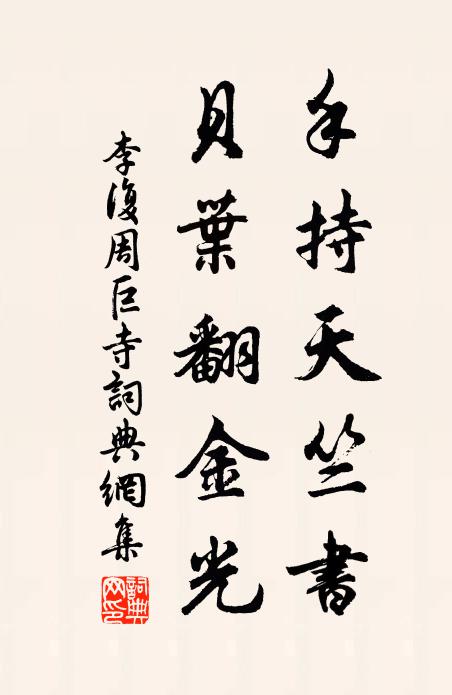 手持天竺書
貝葉翻金光
李復周巨寺詞典網集
詞典网印